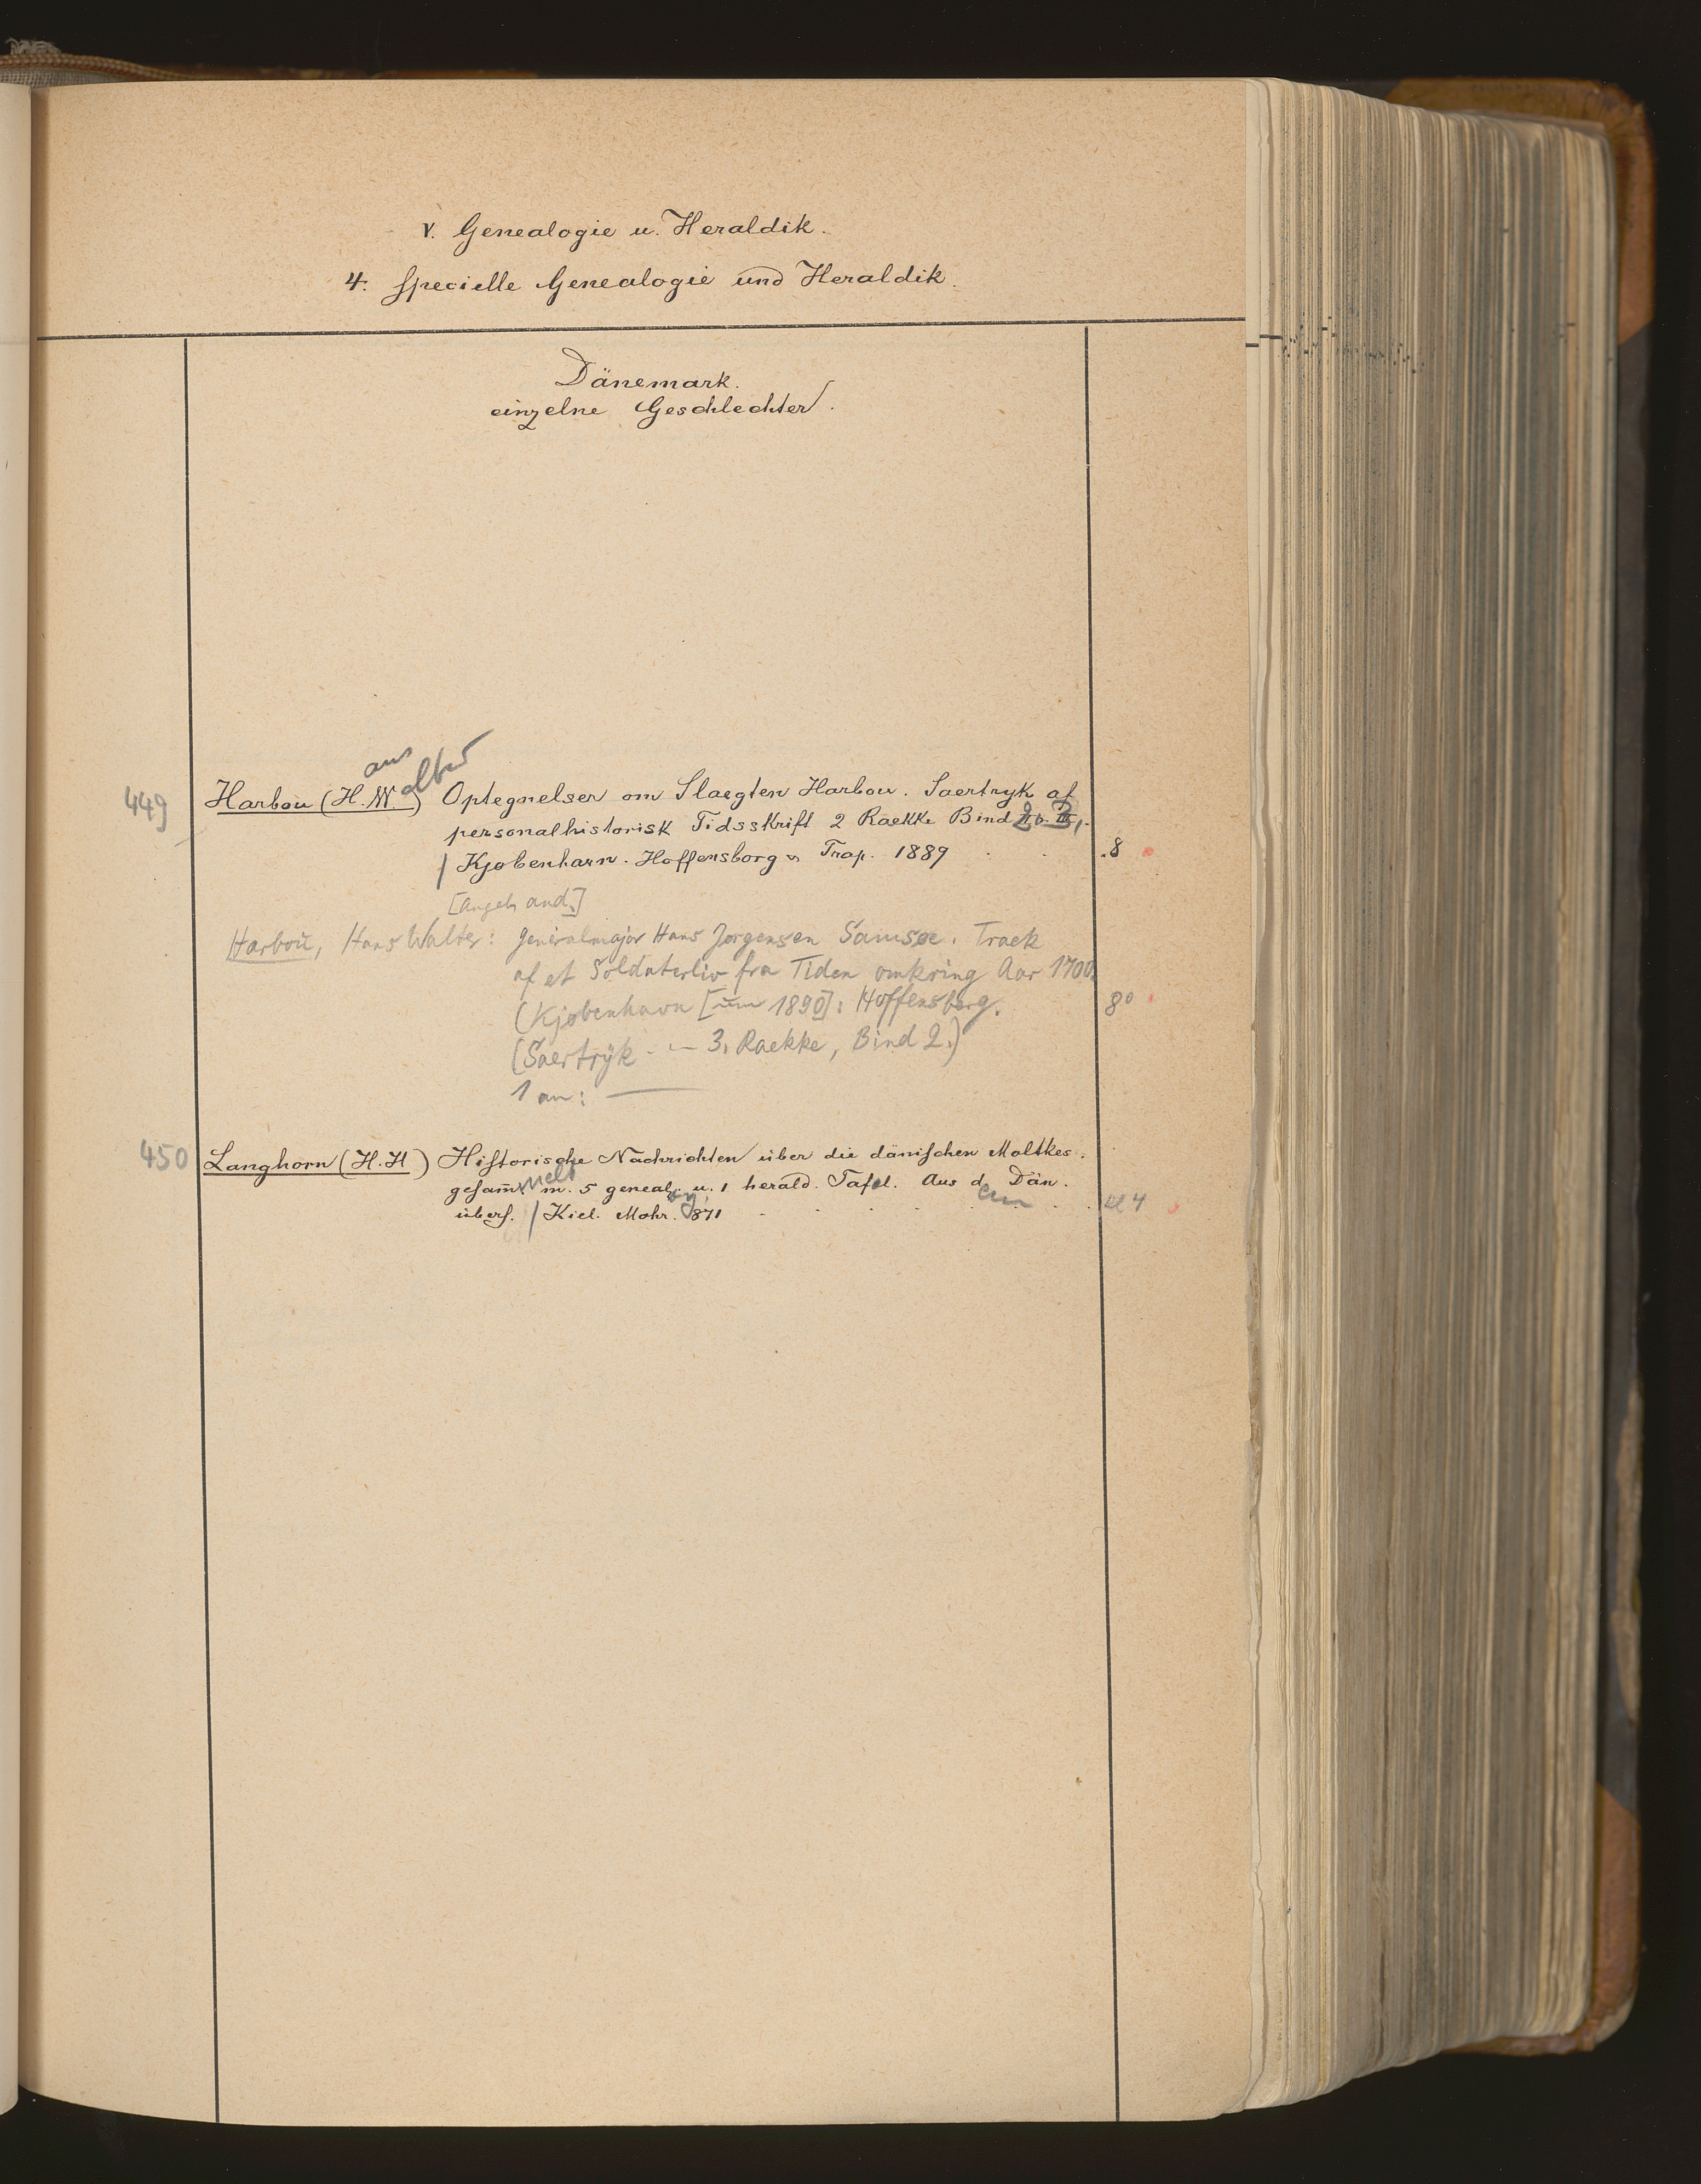 V. Genealogie u. Heraldik.
4. Specielle Genealogie und Heraldik.
Dänemark.
einzelne Geschlechter.
ans alter
449 Harbou (H. W.) Optegnelser om Slaegten Harbou. Saertryk af
personalhistorisk Tidsskrift 2 Raekke Bind II o. III,
/ Kjobenharn. Hoffensborg &. Trap. 1889 . . . 8
[Angeb. and.]
Harbou, Hans Walter: Generalmajor Hans Jorgensen Samsøe. Traek
af et Soldaterliv fra Tiden omkring Aar 1700.
(Kjøbenhavn [um 1890]: Hoffensberg. 8°
(Saertryk - — 3. Raekke, Bind 2.)
1 an: —
450 Langhorn (H. H) Historische Nachrichten über die dänischen Moltkes.
gesam̅melt m. 5 geneal. u. 1 herald. Tafel. Aus dem Dän.
übers. / Kiel. Mohr. 1871 . . . . . . 4